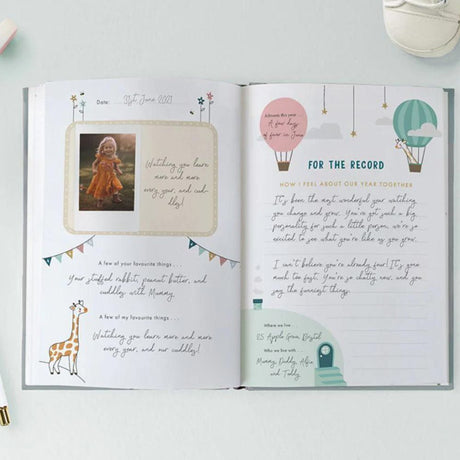 Date: 31st June 2021
Watching you learn
more and more
every year, and cud-
dles!
A few of your favourite things . . .
Your stuffed rabbit, peanut butter, and
cuddles with Mummy.
A few of my favourite things . . .
Watching you learn more and more
every year, and our cuddles!
Allowed this year
A few days
of fear in June
FOR THE RECORD
HOW I FEEL ABOUT OUR YEAR TOGETHER
It's been the most wonderful year watching
you change and grow. You've got such a big
personality for such a little person, we're so
excited to see what you're like as you grow.
I can't believe you're already four! It's gone
much too fast. You're so chatty now, and you
say the funniest things.
Where we live
25 Apple Grove, Bristol
Who we live with
Mummy, Daddy, Alfie
and Teddy